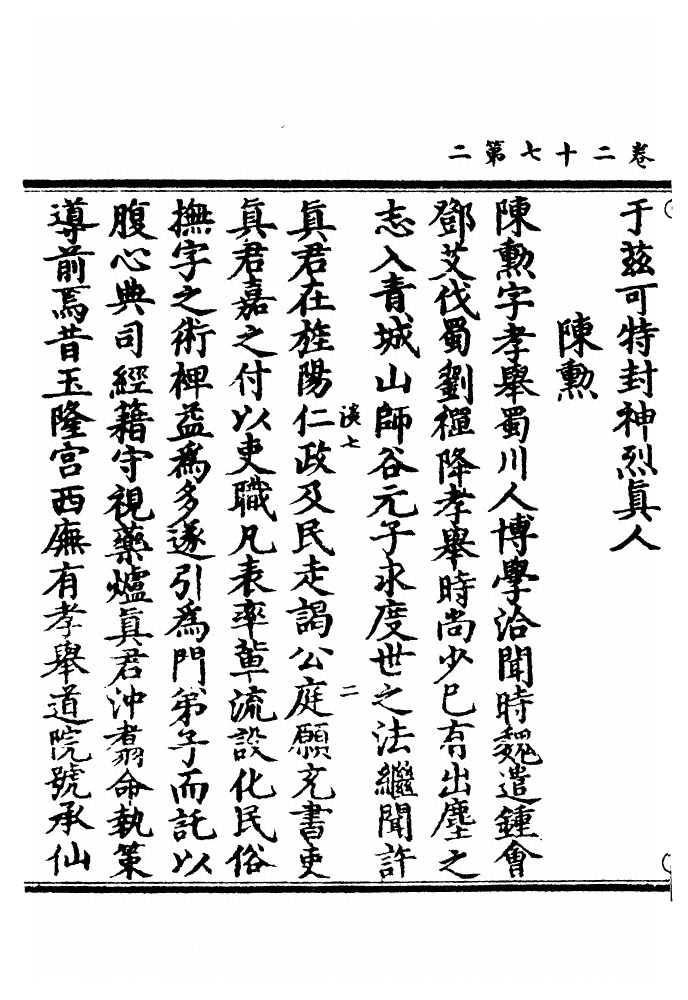 卷二十七第二
于茲可特封神烈眞人
陳勲
陳勲字孝舉蜀川人博學洽聞時魏遣鍾會
鄧艾伐蜀劉禪降孝舉時尚少已有出塵之
志入青城山師谷元子求度世之法繼聞許
淡七
二
眞君在旌陽仁政及民走謁公庭願充書吏
眞君嘉之付以吏職凡表率輩流設化民俗
撫字之術裨益爲多遂引爲門弟子而託以
腹心典司經籍守視藥爐眞君沖翥命執策
導前焉昔玉隆宮西廡有孝舉道院號承仙